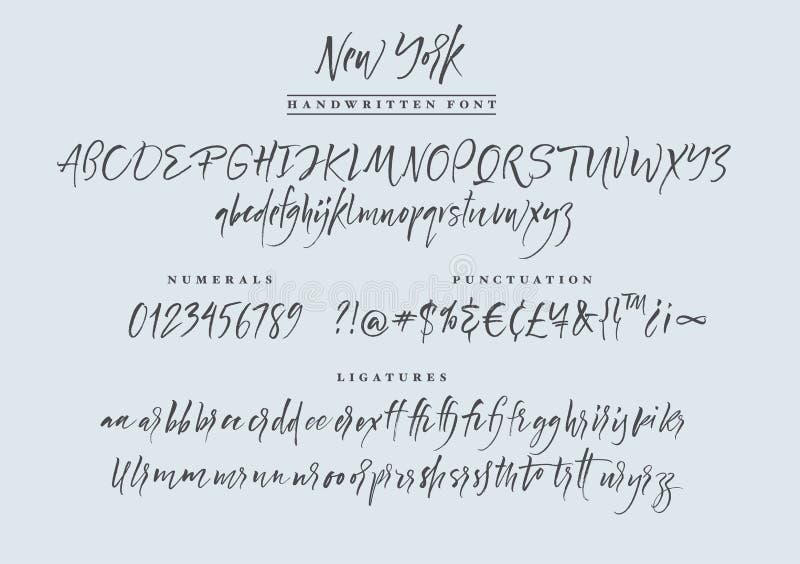 New York
HANDWRITTEN FONT
ABCDEFGHIJKLMNOPQRSTUVWXYZ
abcdefghijklmnopqrstuvwxyz
NUMERALS
PUNCTUATION
0123456789
?!@#$%&€¢£¥&{}™¿¡∞
LIGATURES
aa ar bb br cc cr dd ee er ex ff fh fj fi fr gr hr ir is pi kr
ll lr mm mr nn nr oo or pr rr sh sr ss th to tr tt ur yr zz